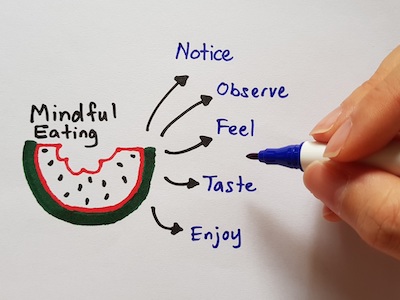 Mindful
Eating
Notice
Observe
Feel
Taste
Enjoy